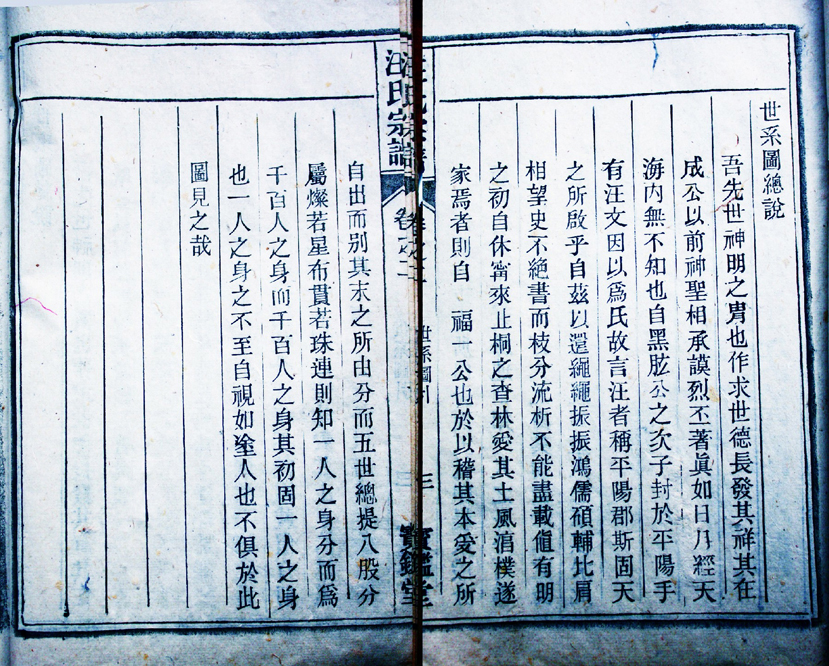 世系圖總說
吾先世神明之胄也作求世德長發其祥其在
成公以前神聖相承謨烈丕著眞如日月經天
海內無不知也自黑肱公之次子封於平陽手
有汪文因以爲氏故言汪者稱平陽郡斯固天
之所啟乎自茲以還繩繩振振鴻儒碩輔比肩
相望史不絕書而枝分流析不能盡載値有明
之初自休寗來止桐之查林愛其土風淯樸遂
家焉者則自　福一公也於以稽其本爰之所
汪氏宗譜
卷之二
世系圖引
三
寶鑑堂
自出而别其末之所由分而五世總提八股分
屬燦若星布貫若珠連則知一人之身分而爲
千百人之身而千百人之身其初固一人之身
也一人之身之不至自視如塗人也不俱於此
圖見之哉